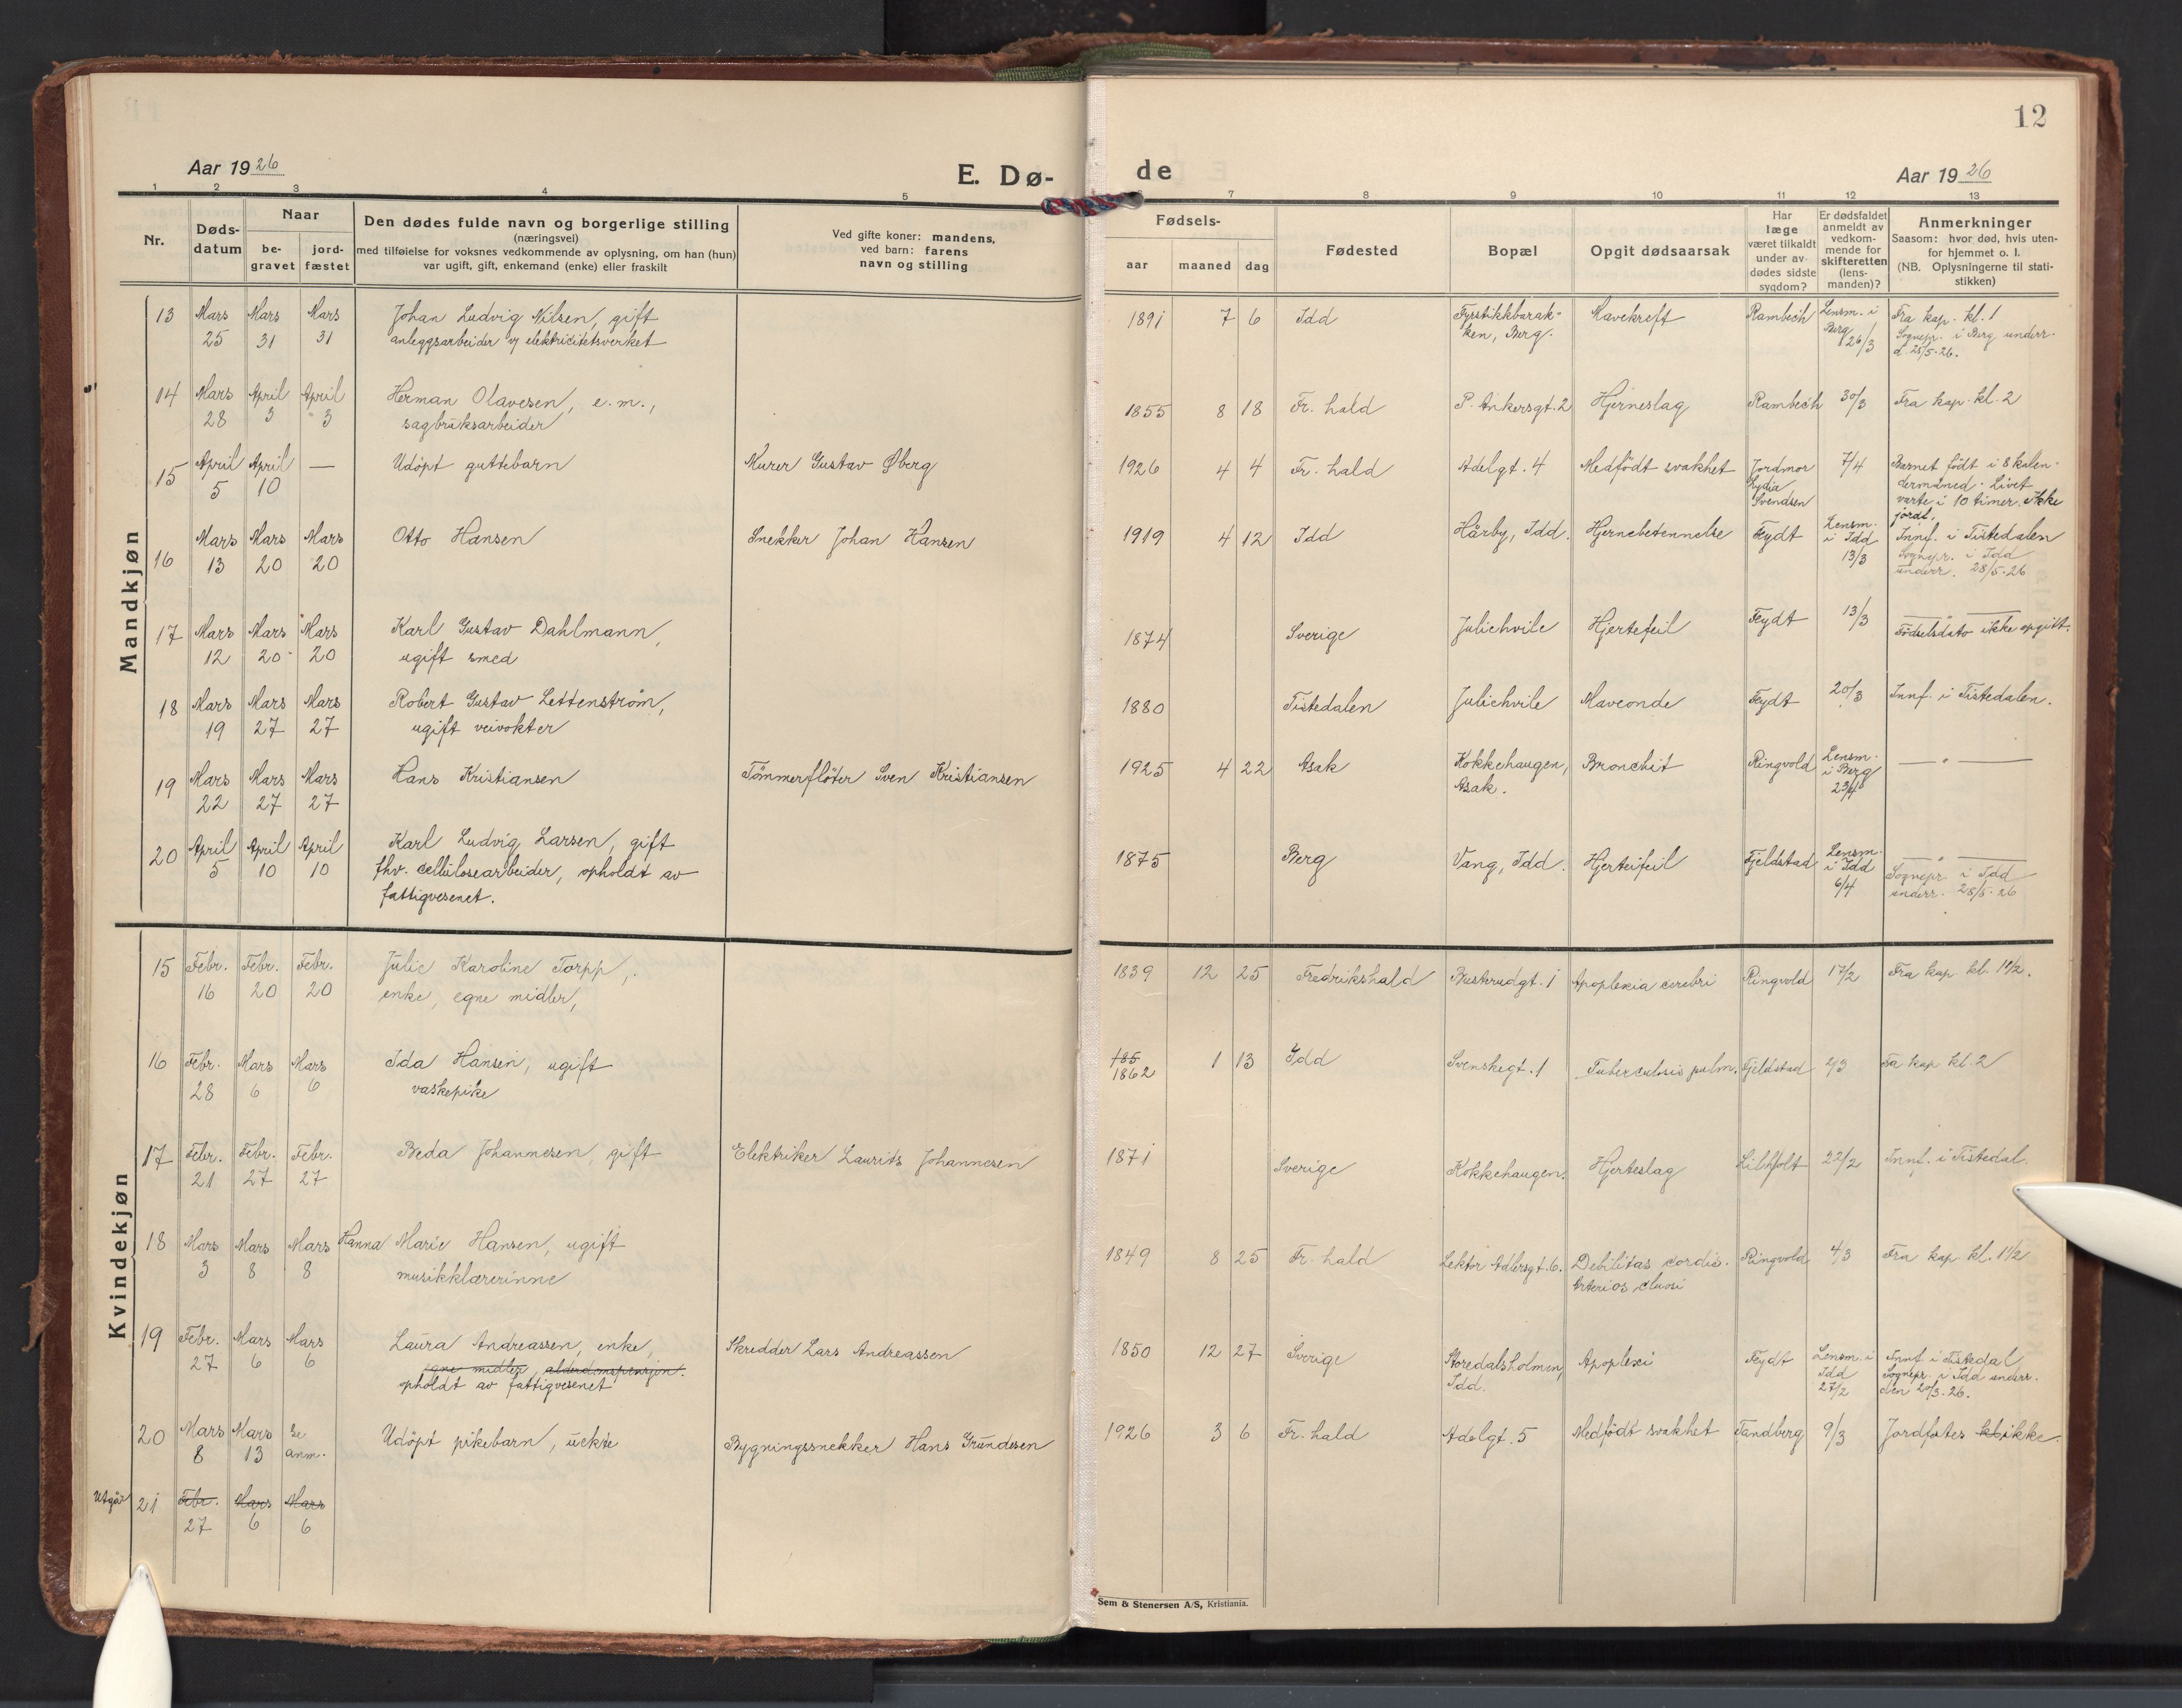 12
Aar 1926
E. Dø-
de
Aar 1926
1 2 3 4 5 6 7 8 9 10 11 12 13
Nr.
Døds-
datum
Naar
be-
gravet
jord-
fæstet
Den dødes fulde navn og borgerlige stilling
(næringsvei)
med tilføielse for voksnes vedkommende av oplysning, om han (hun)
var ugift, gift, enkemand (enke) eller fraskilt
Ved gifte koner: mandens,
ved barn: farens
navn og stilling
Fødsels-
aar maaned dag
Fødested
Bopæl
Opgit dødsaarsak
Har
læge
været tilkaldt
under av-
dødes sidste
sygdom?
Er dødsfaldet
anmeldt av
vedkom-
mende for
skifteretten
(lens-
manden)?
Anmerkninger
Saasom: hvor død, hvis uten-
for hjemmet o. l.
(NB. Oplysningerne til stati-
stikken)
Mandkjøn
13 Mars 25 Mars 31 Mars 31 Johan Ludvig Nilsen, gift
anleggsarbeider v/ elektricitetsverket
1891 7 6 Idd Fyrstikkbarak-
ken, Berg. Mavekreft Rambech Lensm. i
Berg 26/3 Fra kap. kl. 1
Sognepr. i Berg underr.
d. 28/5-26.
14 Mars 28 April 3 April 3 Herman Olavesen, e.m.,
sagbruksarbeider
1855 8 18 Fr. hald P. Ankersgt. 2 Hjerneslag Rambech 30/3 Fra kap. kl. 2
15 April 5 April 10 — Udöpt guttebarn Murer Gustav Øberg
1926 4 4 Fr. hald Adelgt. 4 Medfödt svakhet Jordmor
Lydia
Svendsen 7/4 Barnet födt i 8 kalen-
dermåned. Livet
varte i 10 timer. Ikke
jordf.
16 Mars 13 Mars 20 Mars 20 Otto Hansen Snekker Johan Hansen
1919 4 12 Idd Hårby, Idd. Hjernebetennelse Feydt Lensm.
i Idd
13/3 Innf. i Tistedalen
Sognepr. i Idd
underr. 28/5-26
17 Mars 12 Mars 20 Mars 20 Karl Gustav Dahlmann,
ugift smed
1874 Sverige Juliehvile Hjertefeil Feydt 13/3 — " —
Fødselsdato ikke opgitt.
18 Mars 19 Mars 27 Mars 27 Robert Gustav Lettenström,
ugift veivokter
1880 Tistedalen Juliehvile Maveonde Feydt 20/3 Innf. i Tistedalen.
19 Mars 22 Mars 27 Mars 27 Hans Kristiansen Tömmerflöter Sven Kristiansen
1925 4 22 Asak Kokkehaugen,
Asak. Bronchit Ringvold Lensm.
i Berg
23/4 — " —
20 April 5 April 10 April 10 Karl Ludvig Larsen, gift
fhv. cellulosearbeider, opholdt av
fattigvesenet.
1875 Berg Vang, Idd. Hjerteifeil Fjeldstad Lensm.
i Idd
6/4 — " —
Sognepr. i Idd
underr. 28/5-26
Kvindekjøn
15 Febr. 16 Febr. 20 Febr. 20 Julie Karoline Torpp,
enke, egne midler,
1839 12 25 Fredrikshald Busterudgt. 1 Apoplexia cerebri Ringvold 17/2 Fra kap kl. 1 1/2.
16 Febr. 28 Mars 6 Mars 6 Ida Hansen, ugift
vaskepike
185
1862 1 13 Idd Svenskegt. 1 Tuberculosis pulm. Fjeldstad 2/3 Fra kap kl. 2
17 Febr. 21 Febr. 27 Febr. 27 Beda Johannesen, gift Elektriker Laurits Johannesen
1871 Sverige Kokkehaugen. Hjerteslag 22/2 Innf. i Tistedal.
18 Mars 3 Mars 8 Mars 8 Hanna Marie Hansen, ugift
musikklærerinne
1849 8 25 Fr. hald Lektor Adlersgt. 6. Debilitas cordis.
Ringvold 4/3 Fra kap kl. 1 1/2
19 Febr. 27 Mars 6 Mars 6 Laura Andreassen, enke, Skredder Lars Andreassen
egne midler, alderdomspensjon.
opholdt av fattigvesenet
1850 12 27 Sverige Storedalsholmen,
Idd. Apoplexi Feydt Lensm. i
Idd
27/2 Innf i Tistedal
Sognepr. i Idd underr.
den 20/3-26.
20 Mars 8 Mars 13 Se
anm. Udöpt pikebarn, uekte Bygningssnekker Hans Grundesen
1926 3 6 Fr. hald Adelgt. 5 Medfödt svakhet Tandberg 9/3 Jordfæstes kl ikke.
Utgår 21 Febr. 27 Mars 6 Mars 6
Sem & Stenersen A/S, Kristiania.